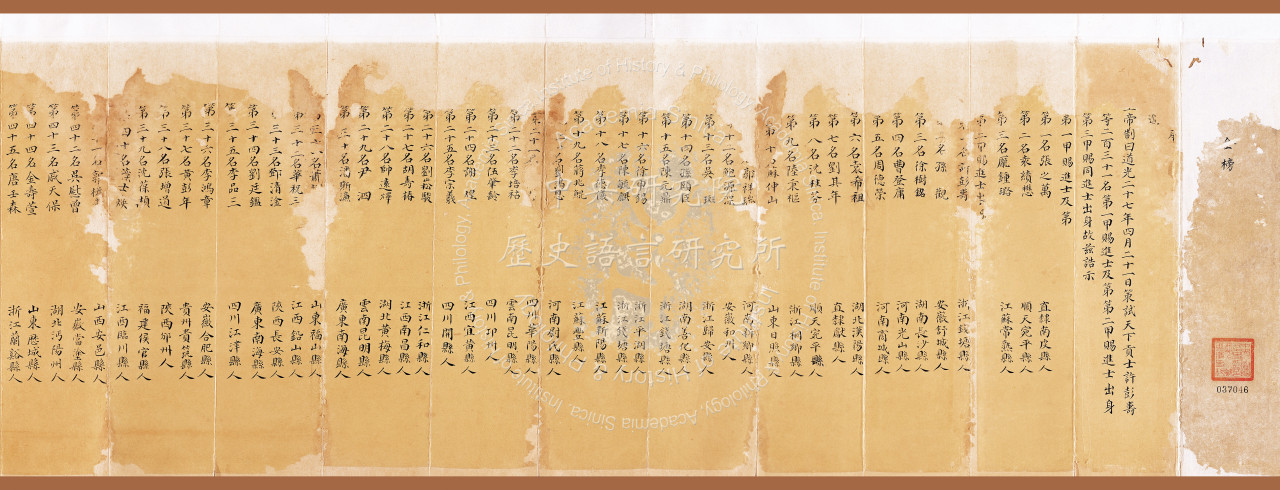 榜
037046
帝制曰道光二十七年四月二十一日策試天下貢士許彭壽
等二百三十一名第一甲賜進士及第第二甲賜進士出身
第三甲賜同進士出身故茲誥示
第一甲賜進士及第
第一名張之萬 直隸南皮縣人
第二名袁績懋 順天宛平縣人
第三名龐鍾璐 江蘇常熟縣人
第二甲賜進士出身
名許彭壽 浙江錢塘縣人
名孫觀 安徽舒城縣人
第三名徐樹銘 湖南長沙縣人
第四名曹登庸 河南光山縣人
第五名周德榮 河南商城縣人
第六名袁希祖 湖北漢陽縣人
第七名劉其年 直隸獻縣人
第八名沈桂芬 順天宛平縣人
第九名陸秉樞 浙江桐鄉縣人
第十名蘇仲山 山東日照縣人
郭祥瑞 河南新鄉縣人
十二名鮑源深 安徽和州人
第十三名吳 浙江歸安縣人
第十四名孫頤臣 湖南善化縣人
第十五名陳元鼎 浙江錢塘縣人
第十六名徐申錫 浙江平湖縣人
第十七名陳毓麒 浙江錢塘縣人
第十八名李德儀 江蘇新陽縣人
第十九名 江蘇豐縣人
劉書 河南尉氏縣人
第二十一 四川華陽縣人
第二十二名李培祜 雲南昆明縣人
第二十三名伍肇齡 四川邛州人
第二十四名謝煌 江西宜黃縣人
第二十五名李宗羲 四川開縣人
第二十六名劉崧駿 浙江仁和縣人
第二十七名胡壽椿 江西南昌縣人
第二十八名帥遠燡 湖北黃梅縣人
第二十九名尹泗 雲南昆明縣人
第三十名潘斯濂 廣東南海縣人
名蕭 山東福山縣人
三十二名華祝三 江西鉛山縣人
三十三名鄧清淦 陝西長安縣人
第三十四名劉廷鑑 廣東南海縣人
第三十五名李品三 四川江津縣人
第三十六名李鴻章 安徽合肥縣人
第三十七名黃彭年 貴州貴筑縣人
第三十八名張增道 陝西邠州人
第三十九名沈葆楨 福建侯官縣人
四十名 江西臨川縣人
名郭 山西安邑縣人
第四十二名 安徽當塗縣人
第四十三名戚天保 湖北沔陽州人
第四十四名 山東歷城縣人
第四十五名唐壬森 浙江蘭谿縣人
歷史語言研究所
Institute of History & Philology, Academia Sinica